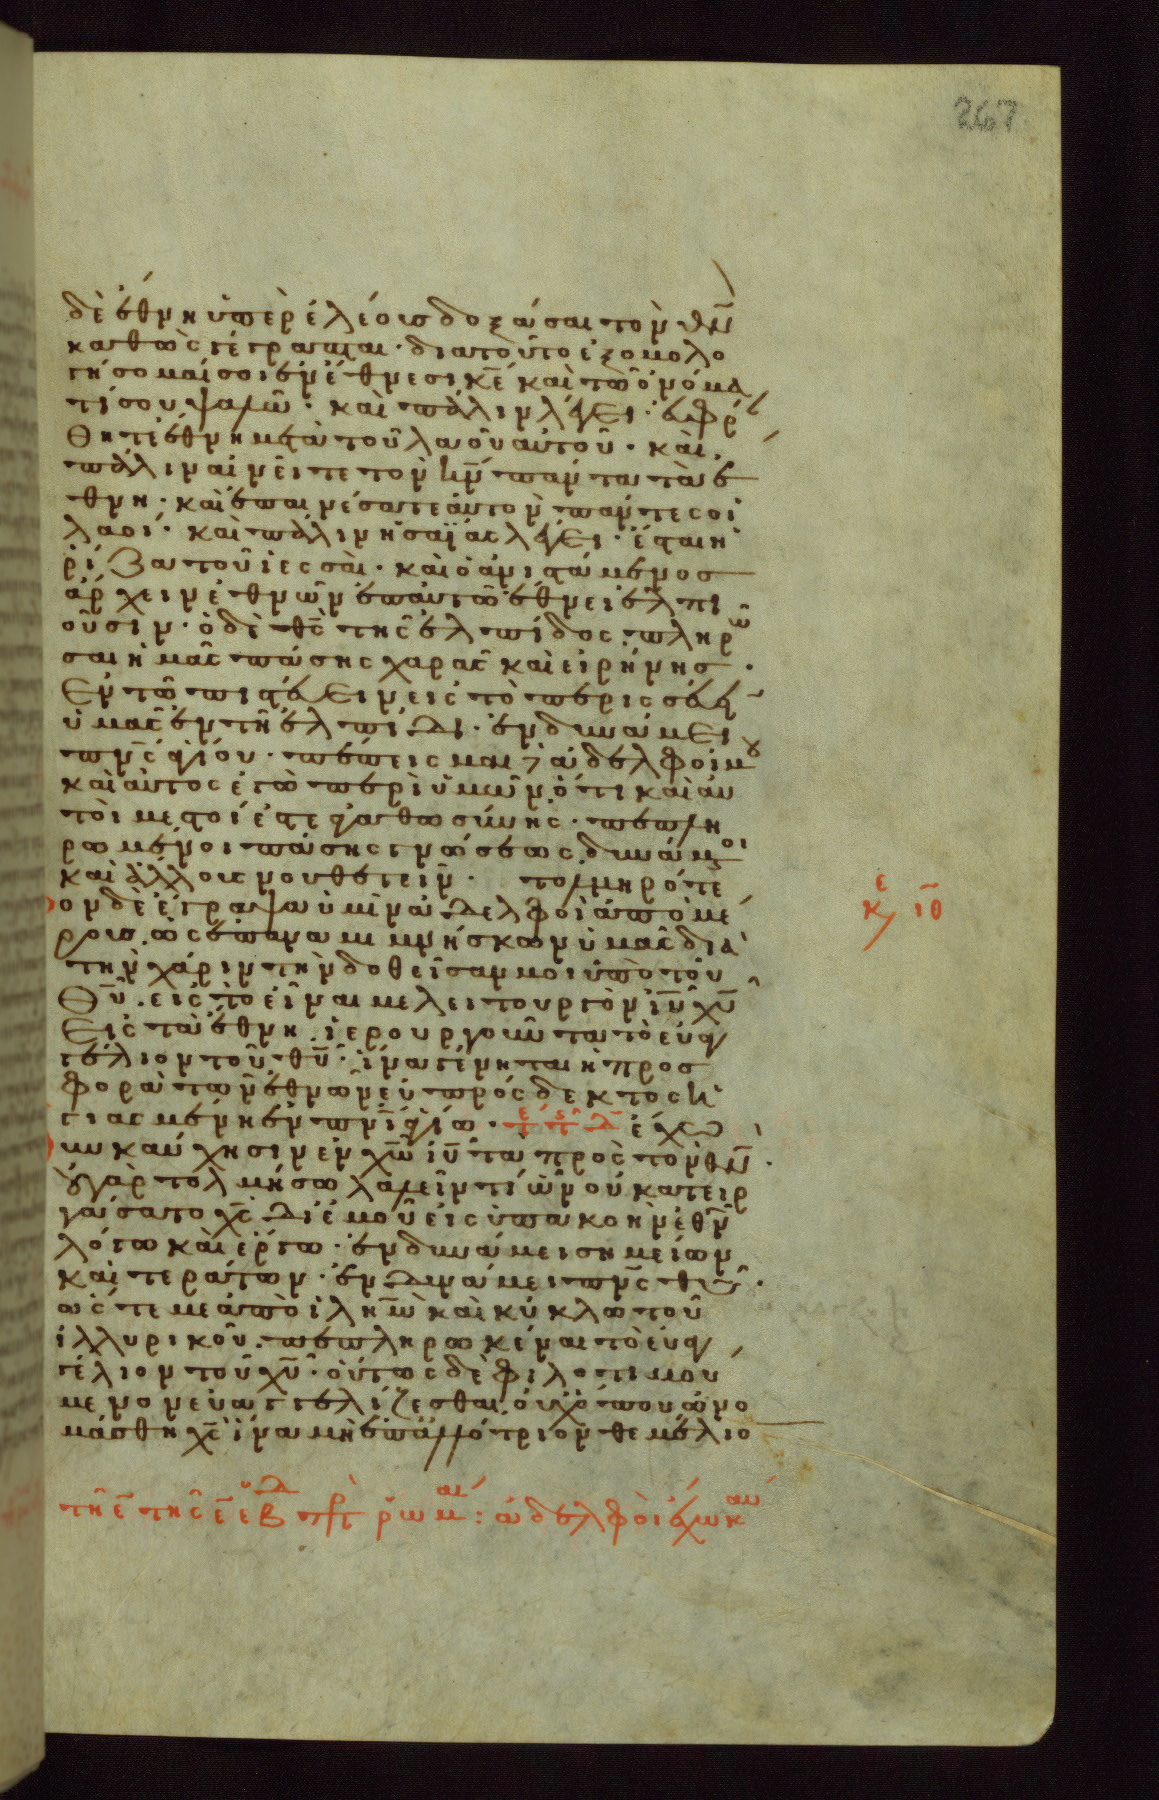 267
δὲ ἔθνη ὑπὲρ ἐλέους δοξάσαι τὸν θν̄
καθὼς γέγραπται · διατοῦτο ἐξομολο
γήσομαί σοι ἐν ἔθνεσι κε̄ καὶ τῶ ὀνόμα
τί σου ψαλῶ · καὶ πάλιν λέγει · εὐφρά
θητι ἔθνη μετὰ τοῦ λαοῦ αὐτοῦ · καὶ
πάλιν αἰνεῖτε τὸν κν̄ πάντα τὰ ἔ
θνη · καὶ ἐπαινέσατε αὐτὸν πάντες οἱ
λαοί · καὶ πάλιν ἡσαΐας λέγει · ἔσται ἡ
ῥίζα τοῦ ἰεσσαὶ · καὶ ὁ ἀνιστάμενος
ἄρχειν ἐθνῶν ἐπαυτῶ ἔθνει ἐλπι
οῦσιν · ὁ δὲ θς̄ τῆς ἐλπίδος πληρω
σαι ἡμᾶς πάσης χαρᾶς καὶ εἰρήνης ·
Εν τῶ πιστεύειν εἰς τὸ περισσεύειν
ὑμᾶς ἐν τῆ ἐλπίδι · ἐν δυνάμει
πνς̄ ἁγίου · πέπεισμαι δὲ ἀδελφοί μου
καὶ αὐτὸς ἐγὼ περὶ ὑμῶν ὅτι καὶ αυ
τοὶ μεστοί ἐστε ἀγαθωσύνης · πεπλη
ρωμένοι πάσης γνώσεως δυνάμενοι
καὶ ἄλλους νουθετεῖν · τολμηρότε
ρον δὲ ἔγραψα ὑμῖν ἀδελφοὶ ἀπὸ μέ
ρους ὡς ἐπαναμιμνήσκων ὑμᾶς διὰ
τὴν χάριν τὴν δοθεῖσαν μοι ὑπὸ τοῦ
Θῡ · εἰς τὸ εἶναι με λειτουργὸν ῑῡ χῡ
Εἰς τὰ ἔθνη ἱερουργοῦντα τὸ εὐαγ
γέλιον τοῦ θῡ · ἵνα γένηται ἡ προσ
φορὰ τῶν ἐθνῶν εὐπρόσδεκτος ἡ
γιασμένη ἐν πνῑ ἁγίω · ἔχω
ε κ, ιθ̄
οῦν καύχησιν ἐν χω̄ ιῡ τὰ πρὸς τὸν θν̄ ·
οὐ γὰρ τολμήσω λαλεῖν τί ὧν οὐ κατειρ
γάσατο χς̄ δι ἐμοῦ εἰς ὑπακοὴν ἐθνῶν
λόγω καὶ ἔργω · ἐν δυνάμει σημείων
καὶ τεράτων · ἐν δυνάμει πνς̄ θῡ ·
ὡς τε με ἀπὸ ἰλημ̄ καὶ κύκλω τοῦ
ἰλλυρικοῦ · πεπληρωκέναι τὸ εὐαγ
γέλιον τοῦ χῡ · οὕτως δὲ φιλοτιμου
μενον εὐαγγελίζεσθαι ουχ ὅπου ὠνο
μάσθη χς̄ ἵνα μὴ ἐπαλλότριον θεμέλιο
τῆ ε̄ τῆς ε̄ ἑβδ πρ ῥωμαι : ἀδελφοὶ ἔχω καυ